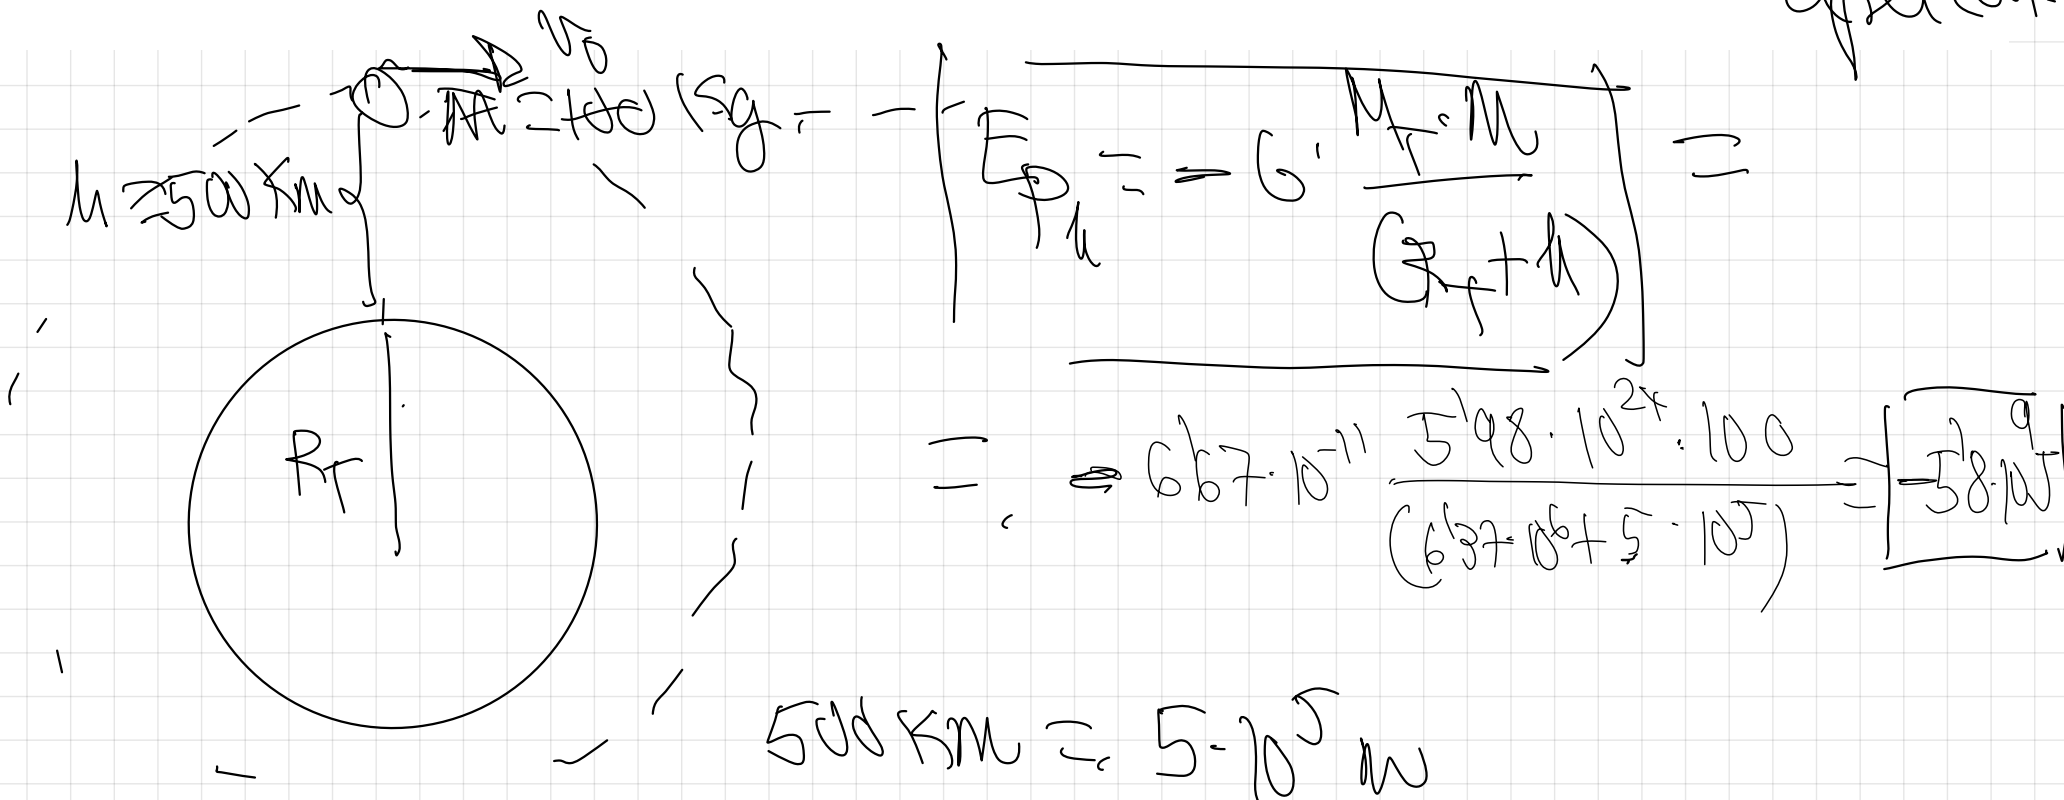 v₀
m = 100 Kg
h = 500 Km
R_T
E_{p_h} = - G · \frac{M_T · m}{(R_T + h)} =
= - 6'67 · 10^{-11} \frac{5'98 · 10^{24} · 100}{(6'37 · 10^6 + 5 · 10^5)} = -5'8 · 10^9 J
500 Km = 5 · 10^5 m